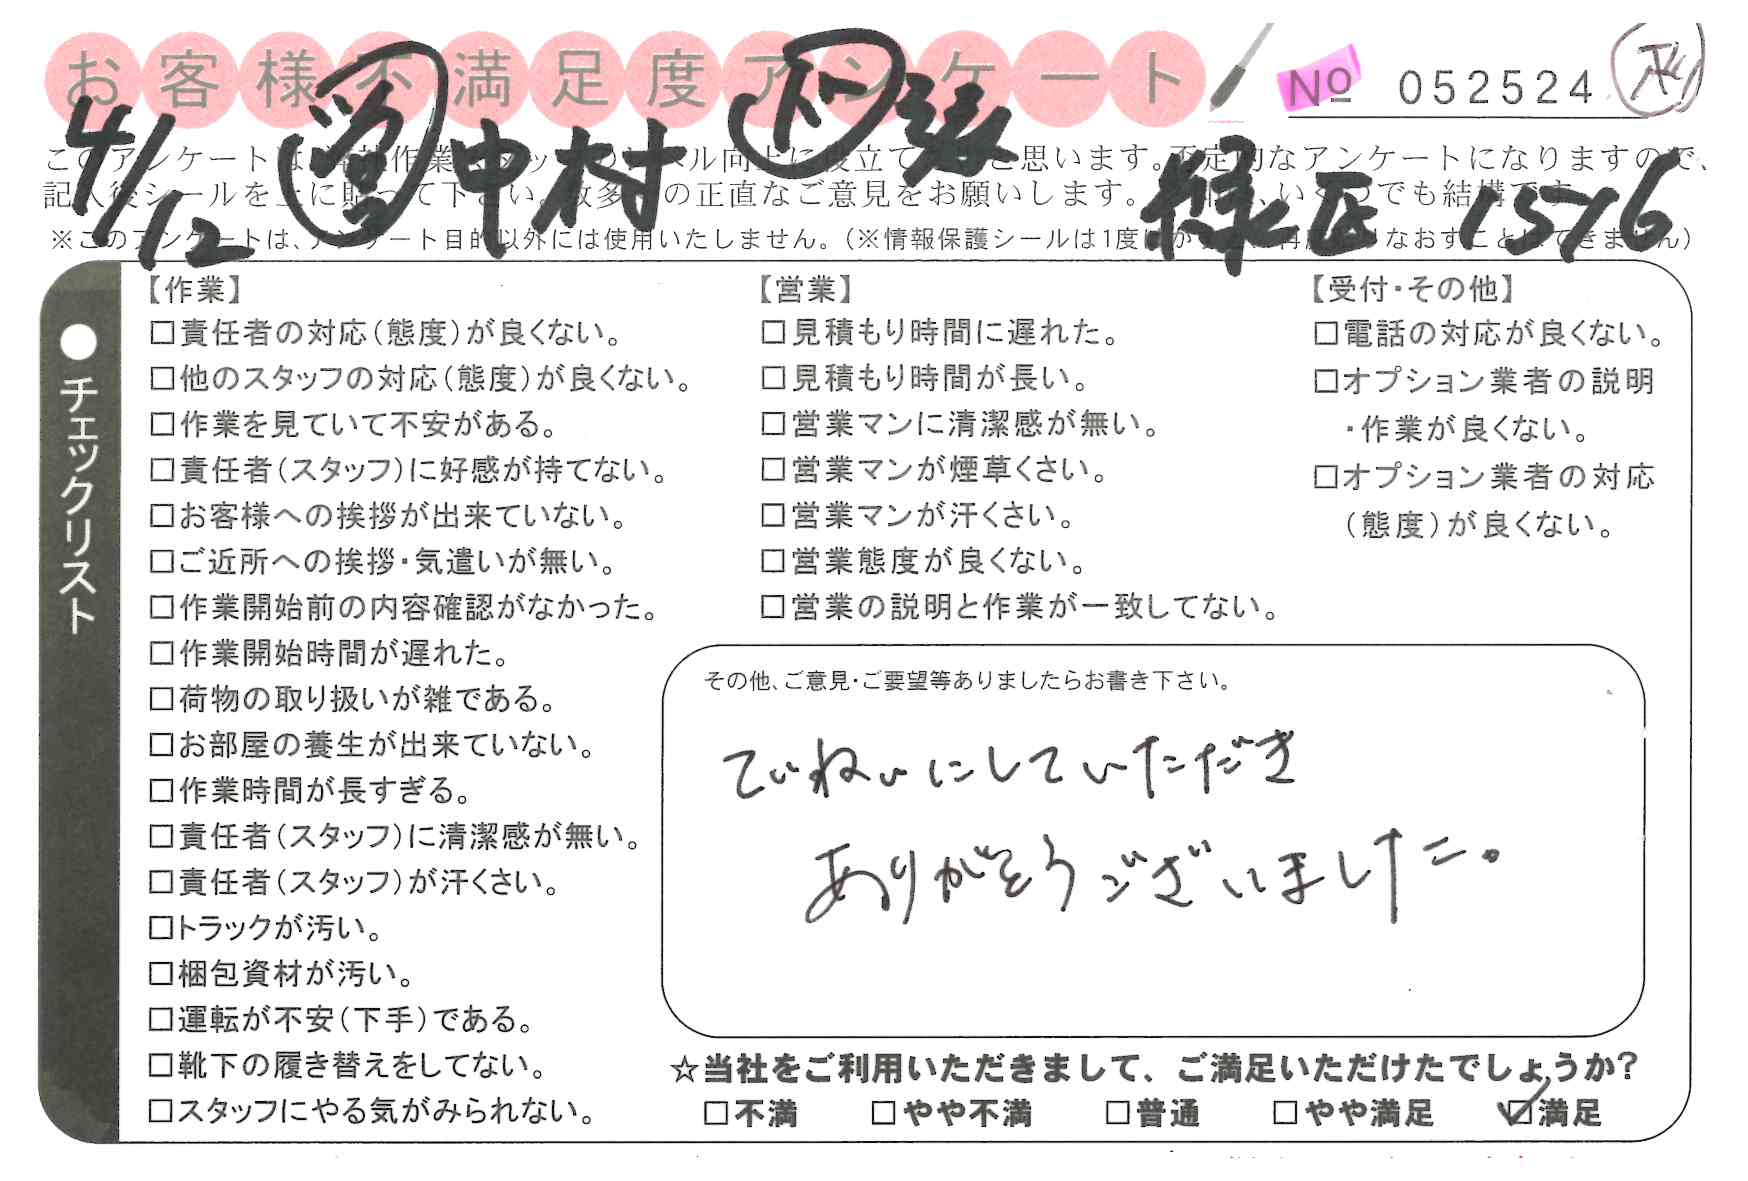 お客様不満足度アンケート
No 052524
4/12 営 中村 ト 張 緑区 1576
このアンケートは、弊社作業スタッフのレベル向上に役立てたいと思います。否定的なアンケートになりますので、
記入後シールを上に貼って下さい。数多くの正直なご意見をお願いします。 いくつでも結構です。
※このアンケートは、アンケート目的以外には使用いたしません。(※情報保護シールは1度はがすと、再度貼りなおすことはできません)
●チェックリスト
【作業】
□責任者の対応(態度)が良くない。
□他のスタッフの対応(態度)が良くない。
□作業を見ていて不安がある。
□責任者(スタッフ)に好感が持てない。
□お客様への挨拶が出来ていない。
□ご近所への挨拶・気遣いが無い。
□作業開始前の内容確認がなかった。
□作業開始時間が遅れた。
□荷物の取り扱いが雑である。
□お部屋の養生が出来ていない。
□作業時間が長すぎる。
□責任者(スタッフ)に清潔感が無い。
□責任者(スタッフ)が汗くさい。
□トラックが汚い。
□梱包資材が汚い。
□運転が不安(下手)である。
□靴下の履き替えをしてない。
□スタッフにやる気がみられない。
【営業】
□見積もり時間に遅れた。
□見積もり時間が長い。
□営業マンに清潔感が無い。
□営業マンが煙草くさい。
□営業マンが汗くさい。
□営業態度が良くない。
□営業の説明と作業が一致してない。
【受付・その他】
□電話の対応が良くない。
□オプション業者の説明
・作業が良くない。
□オプション業者の対応
(態度)が良くない。
その他、ご意見・ご要望等ありましたらお書き下さい。
ていねいにしていただき
ありがとうございました。
☆当社をご利用いただきまして、ご満足いただけたでしょうか?
□不満 □やや不満 □普通 □やや満足 ☑満足